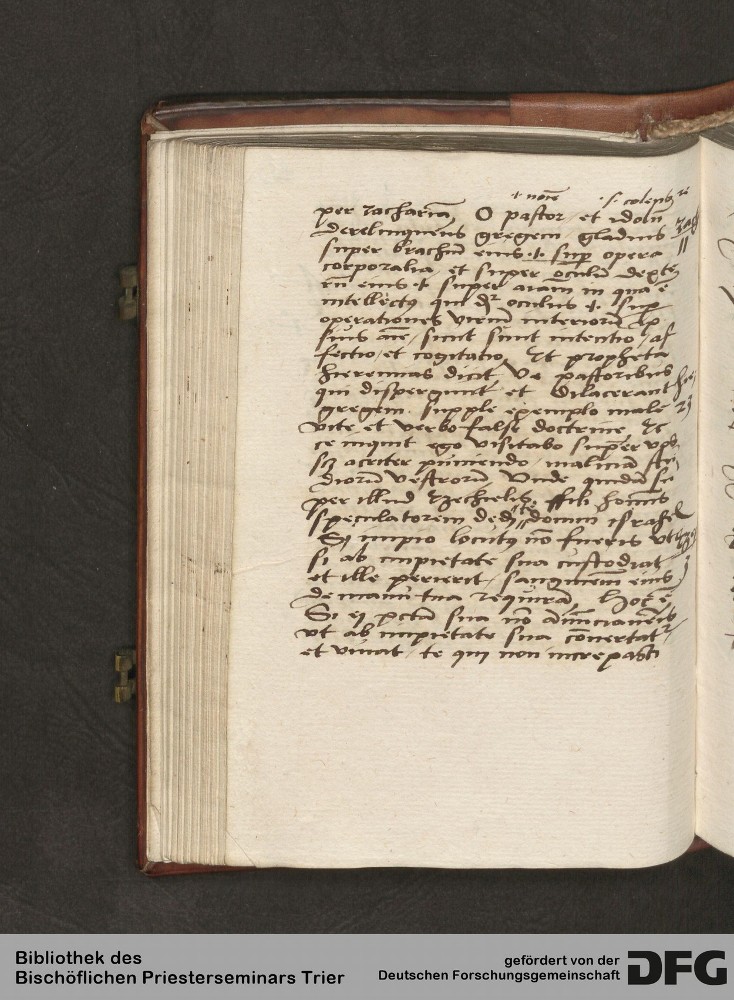 + no͞ie ·/· colendꝰ re
per zachariā, O pastor et idolū
derelinquens gregem gladius
super brachiū eius ·+· sup̄ opera
corporalia, et super oculū dexte,
rū eius ·+· super aiam in qua ē
intellectꝰ qui dr̄ oculus +· sup̄
operationes
sius aīe, sicut sunt intentio, af
fectio, et cogitatio, Et propheta
hieremias dicit Ve pastoribus
qui disperguut et dilacerant
gregem. supple exemplo male
vite, et verbo false doctrine, Ec
ce inquit ego visitabo super vos,
scz acriter puniendo, maliciā stu,
diorū vestrorū, Unde quidā su
per illud Ezechielis, ffili hominis
speculatorem dedi te domui israhel
Si impio locutꝰ nō fueris vt
si ab impietate sua custodiat
et ille perierit, sanguinem eius
de manu tua requirā, Hoc ē
Si ei pctā sua nō annuncianeris
vt ab impietate sua conuertatr̄,
et viuat, te qui non increpasti
zach
11
hie
23
Bibliothek des
Bischöflichen Priesterseminars Trier
gefördert von der
Deutschen Forschungsgemeinschaft
DFG